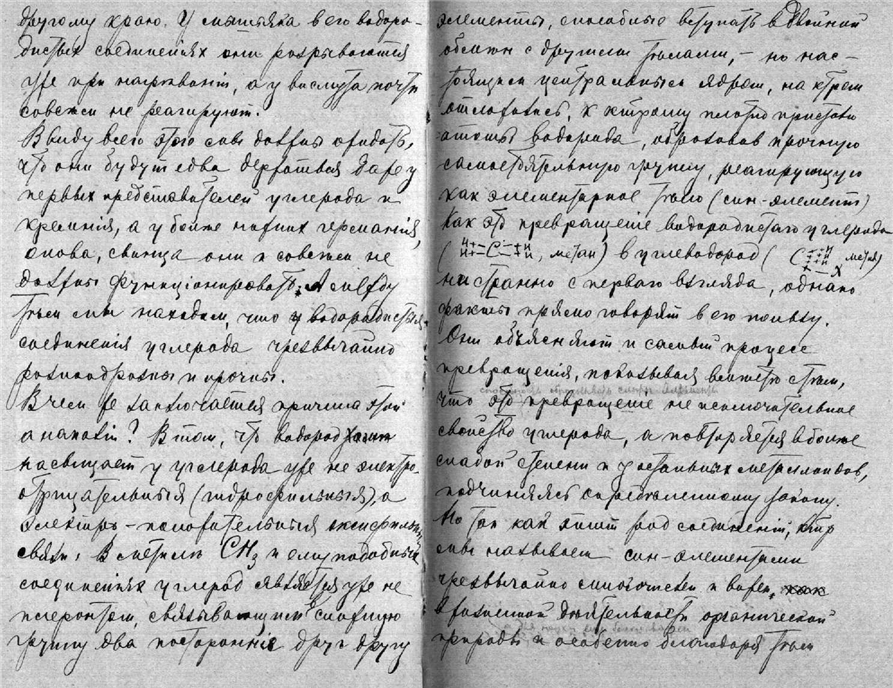 другому краю. У мышьяка в его водоро-
дистых соединенiях они разрываются
уже при нагреванiи, а у висмута почти
совсем не реагируют.
Ввиду всего этого сами должны ожидать,
что они будут едва держаться даже у
первых представителей углерода и
кремнiя, а у более низких германiя,
олова, свинца они и совсем не
должны функцiонировать. А между
тем мы находим, что у водородистыя
соединенiя углерода чрезвычайно
разнообразны и прочны.
В чем же заключается причина этой
аномалiи? В том, что водород
насыщает у углерода уже не электро-
отрицательныя (гидрофильныя), а
электро-положительныя оксифильныя
связи. В метиле CH3 и ему подобных
соединенiях углерод является уже не
цементом, связывающим в сложную
группу два посторонние друг другу
элементы, способные вступать в двойной
обмен с другими телами, – но нас-
тоящим центральным ядром, на ктрем
отложились, к ктрому плотно пристали
атомы водорода, образовав прочную
самостоятельную группу, реагирующую
как элементарное тело (син-элемент)
Как это превращенiе водородистаго углерода
(H+–C–+H, метан) в углеводород ( C H, метил)
ни странно с перваго взгляда, однако
факты прямо говорят в его пользу.
Они объясняют и самый процесс
превращенiя, показывая вместе с тем,
что это превращенiе не исключительное
свойство углерода, а повторяется в более
слабой степени и у остальных металлоидов,
подчиняясь определенному закону.
Но так как этот род соединенiй, ктр
мы называем син-элементами
чрезвычайно многочислен и важен,
в жизненной деятельности органической
природы и особенно благодаря тем